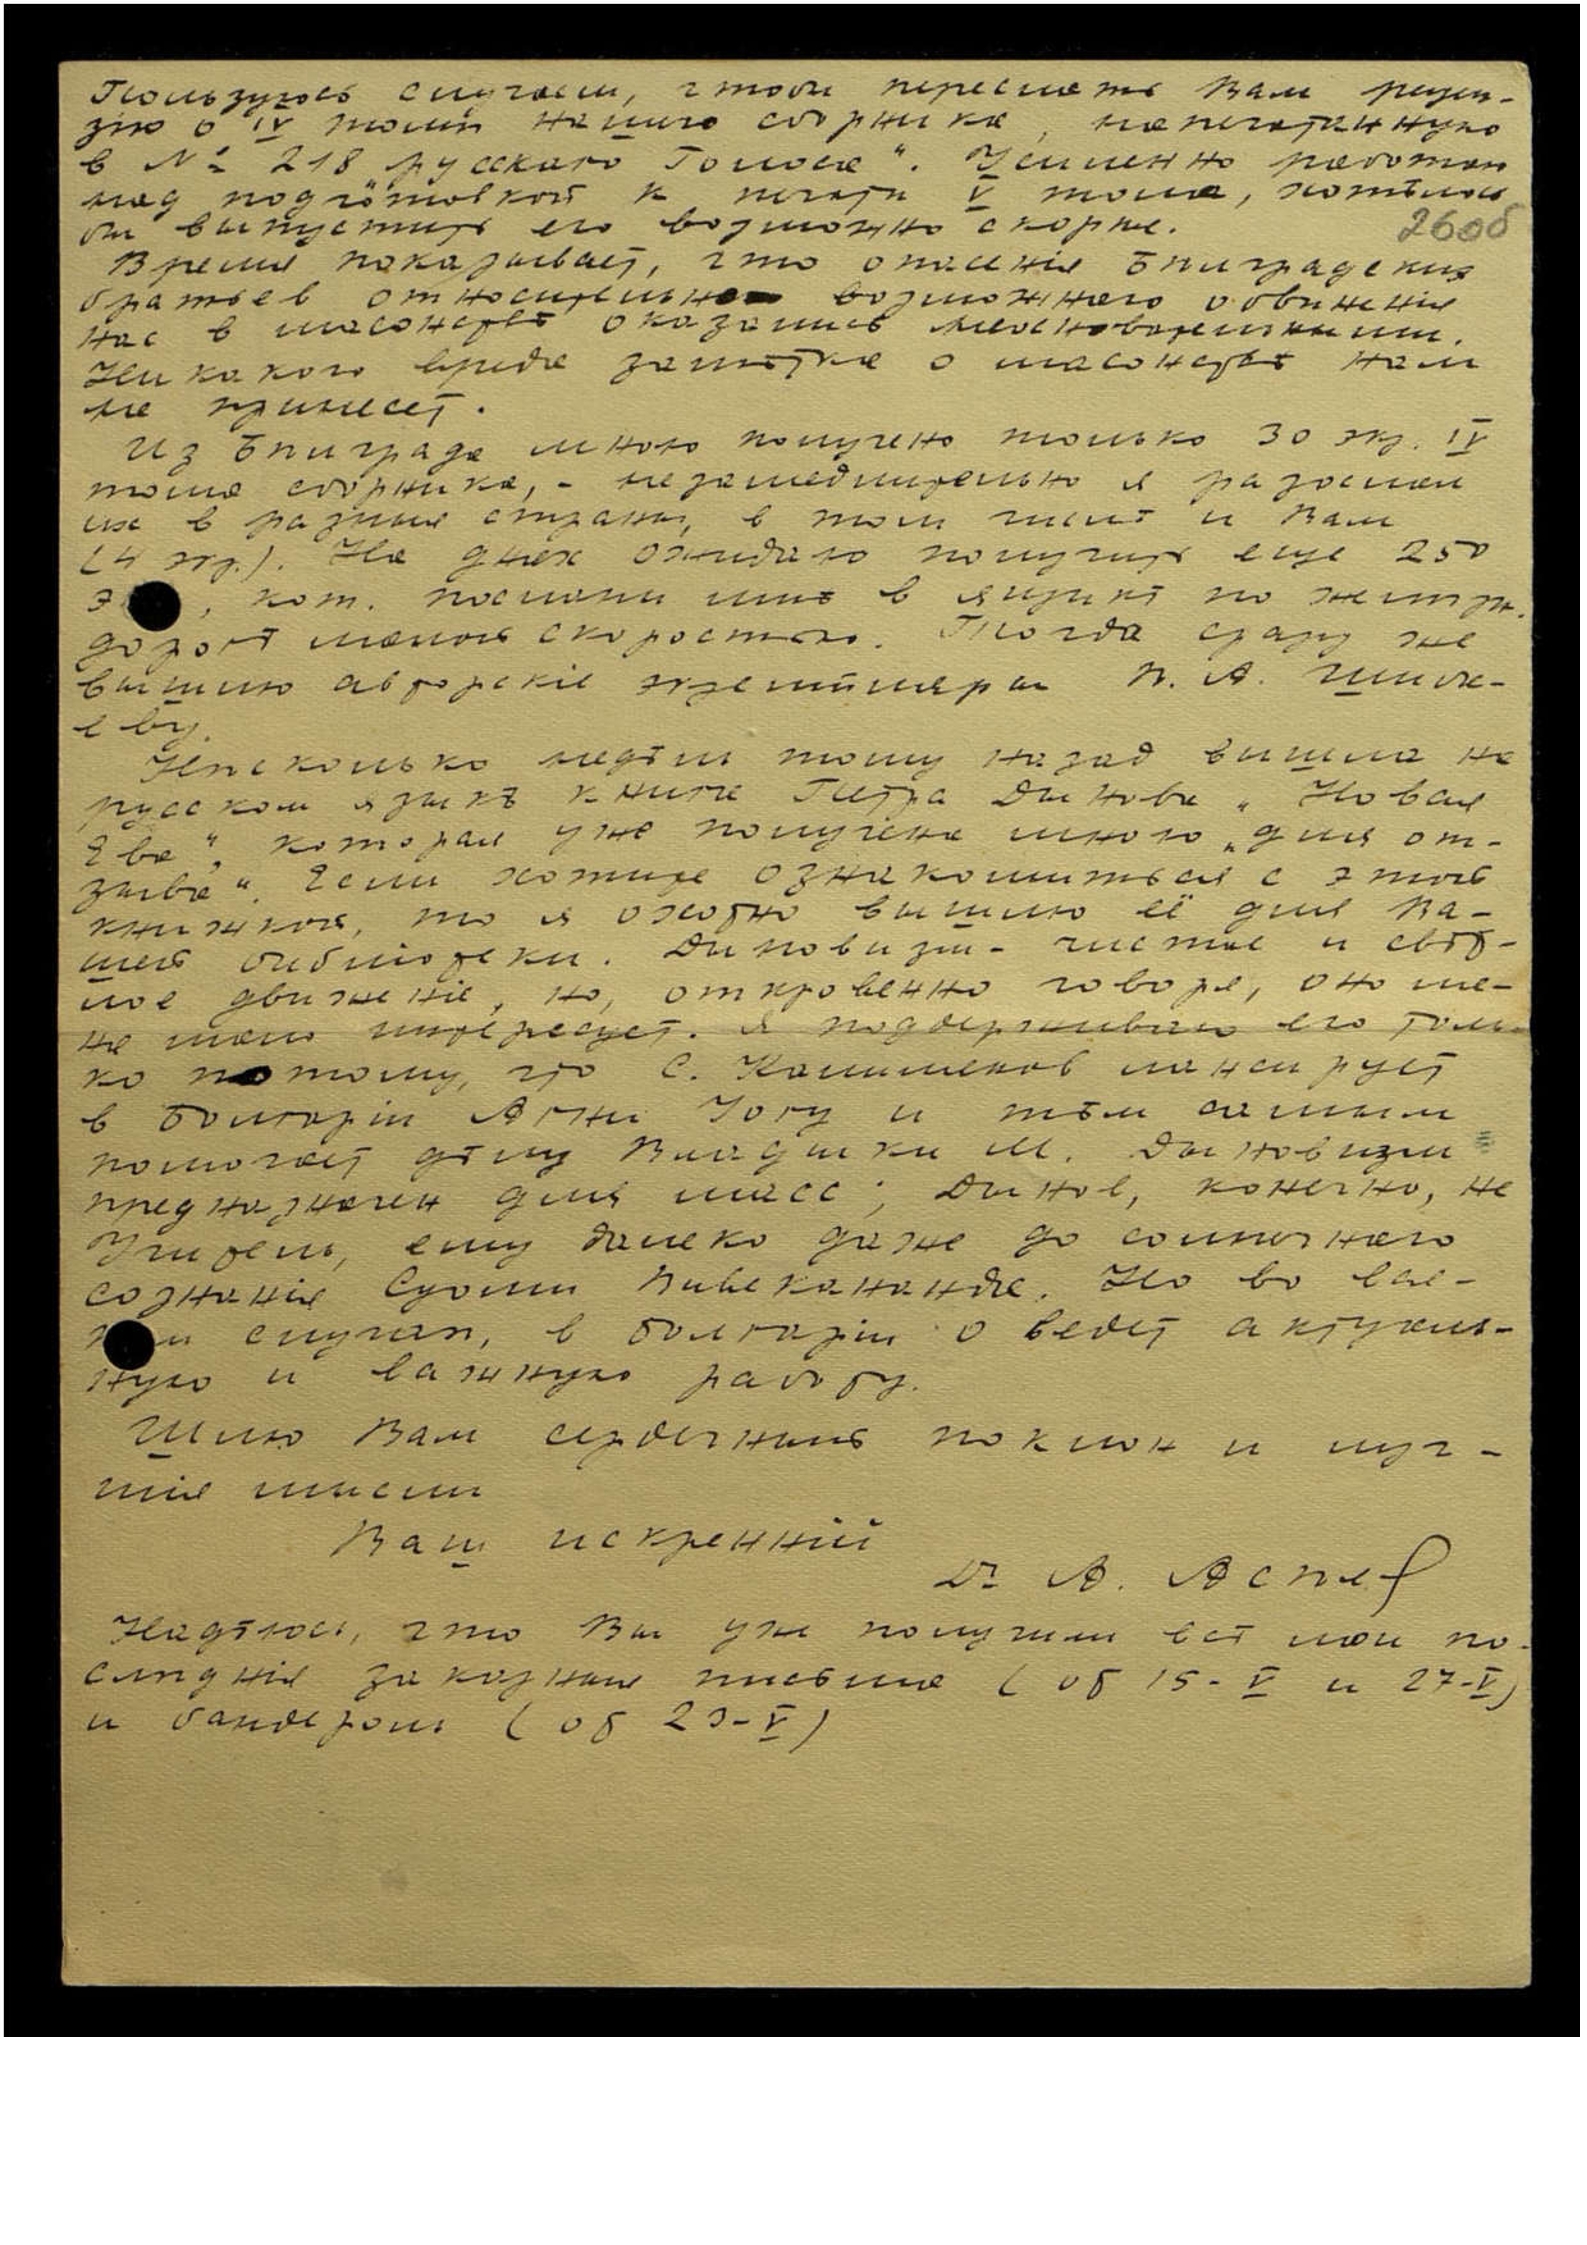 Пользуюсь случаем, чтобы переслать Вам рецен-
зію о IV томѣ нашего сборника, напечатанную
в № 218 „Русскаго Голоса“. Усиленно работаю
над подготовкой к печати V тома, хотѣлось
бы выпустить его возможно скорѣе.
26об
Время показывает, что опасенія Бѣлградских
братьев относительно возможнаго обвиненія
нас в масонствѣ оказались неосновательными.
Никакого вреда замѣтка о масонствѣ нам
не принесет.
Из Бѣлграда мною получено только 30 экз. IV
тома сборника, - незамедлительно я разослал
их в разныя страны, в том числѣ и Вам
(4 экз.). На днях ожидаю получить еще 250
э , кот. посланы мнѣ в ящикѣ по желѣзн.
дорогѣ малой скоростью. Тогда сразу же
вышлю авторскіе экземпляры П. А. Шиба-
еву.
Нѣсколько недѣль тому назад вышла на
русском языкѣ книга Петра Дынова „Новая
Ева“, которая уже получена мною „для от-
зыва“. Если хотите ознакомиться с этой
книжкой, то я охотно вышлю её для Ва-
шей библіотеки. Дыновизм - чистое и свѣт-
лое движеніе, но, откровенно говоря, оно ме-
ня мало интересует. Я поддерживаю его толь-
ко потому, что С. Калименов лансирует
в Болгаріи Агни Йогу и тѣм самым
помогает дѣлу Владыки М. Дыновизм
предназначен для масс; Дынов, конечно, не
Учитель, ему далеко даже до солнечнаго
сознанія Суоми Вивекананда. Но во вся-
 м случаѣ, в Болгаріи о ведет актуаль-
ную и важную работу.
Шлю Вам сердечный поклон и луч-
шія мысли
Ваш искренній
Dr А. Асѣев
Надѣюсь, что Вы уже получили всѣ мои по-
слѣднія заказныя письма (от 15-V и 27-V)
и бандероль (от 23-V)